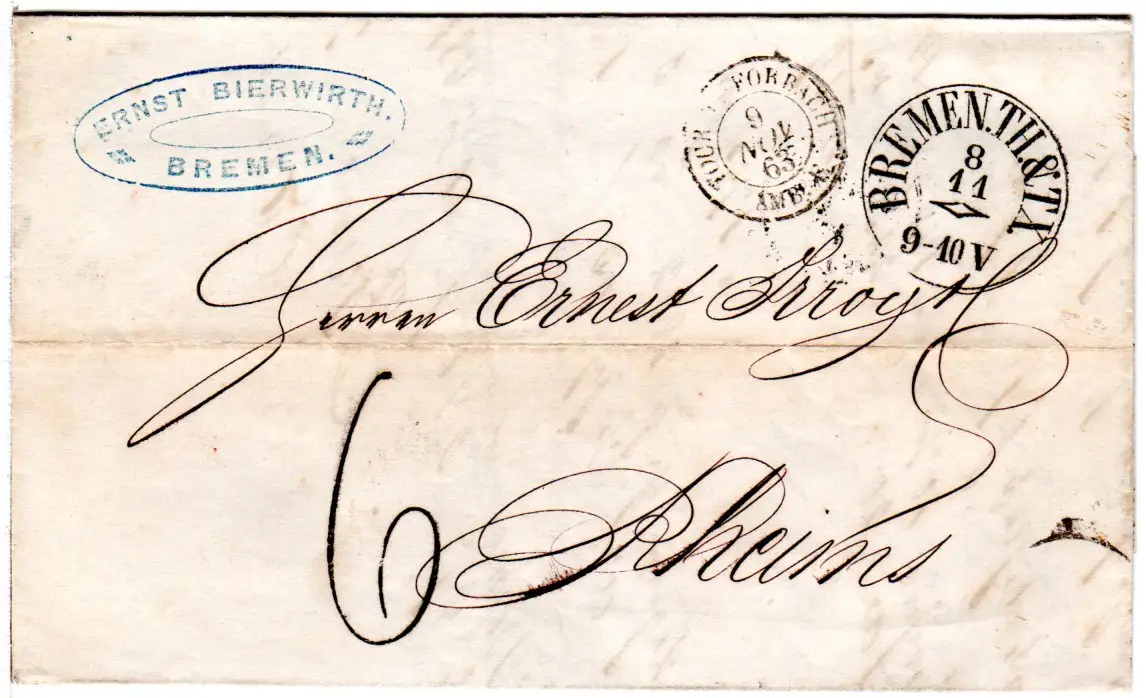 ERNST BIERWIRTH.
BREMEN.
TOUR FORBACH
9
NOV.
63
AMB. A
BREMEN.TH.&TX
8
11
9-10 V
Herren Ernest Irroy &
6
Rheims